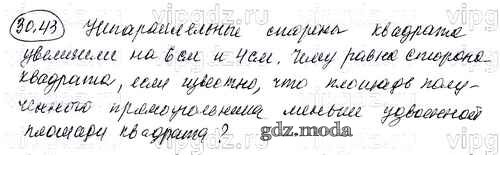 30.43 Непараллельные стороны квадрата
увеличили на 6 см и 4 см. Чему равна сторона
квадрата, если известно, что площадь полу-
ченного прямоугольника меньше удвоенной
площади квадрата?
gdz.moda